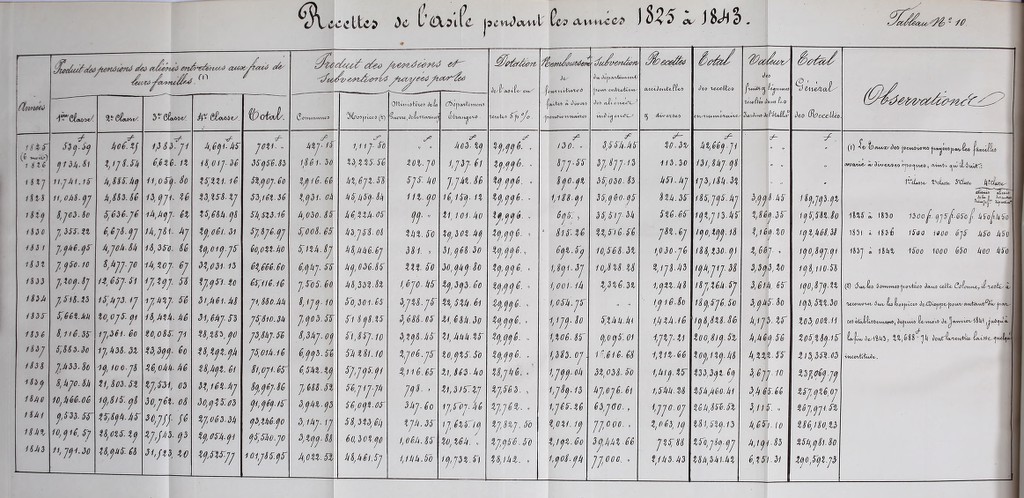 Recettes de l'asile pendant les années 1825 à 1843.
Tableau N° 10
Années
Produit des pensions des aliénés entretenus aux frais de leurs familles (1)
1ère Classe 2e Classe 3e Classe 4e Classe Total.
Produit des pensions et Subventions payées par les
Communes Hospices (2) Départemens étrangers
Dotation de l'asile en rentes 5 p%
Subvention du département pour entretien des aliénés indigents
Recettes accidentelles & diverses
Total des recettes en numéraire
Valeur des
Total Général des Recettes
Observations
1825 (6 mois) 539.59 406.25 1383.71 4,691.45 7021. 427.15 1,117.50 403.29 29,996. 130. 3,554.45 20.32 42,669.71
1826 9134.81 2,178.54 6,626.12 18,017.36 35,956.83 1,861.30 23,225.56 202.70 1,737.61 29,996. 877.55 37,877.13 113.30 131,847.98
1827 11,741.15 4,885.49 11,059.80 25,221.16 52,907.60 2,916.66 42,672.58 575.40 7,742.86 29,996. 890.92 35,030.83 451.47 173,184.32
1828 11,048.97 4,883.86 13,971.26 23,258.27 53,162.36 2,931.04 45,459.84 112.90 16,159.12 29,996. 1,188.91 35,960.95 824.35 185,795.47 3,998.45 189,793.92
1829 8,703.80 5,636.76 14,497.62 25,684.98 54,523.16 4,030.85 46,224.05 99. 21,101.40 29,996. 695. 35,517.34 526.65 192,713.45 2,869.35 195,582.80
1830 7,355.22 6,678.97 14,781.47 29,061.31 57,876.97 5,008.65 43,758.08 242.50 29,302.49 29,996. 815.26 22,516.56 782.67 190,299.18 2,169.20 192,468.38
1831 7,946.95 4,704.84 18,350.86 29,019.75 60,022.40 5,124.87 48,446.67 381. 31,968.30 29,996. 692.59 10,568.32 1,030.76 188,230.91 2,667. 190,897.91
1832 7,950.10 8,477.70 14,207.67 32,031.13 62,666.60 6,947.55 49,036.85 222.50 30,949.80 29,996. 1,891.37 10,828.28 2,178.43 194,717.38 3,393.20 198,110.58
1833 7,209.87 12,657.51 17,297.58 27,951.20 65,116.16 7,505.60 48,332.82 1,670.45 29,393.60 29,996. 1,001.14 2,326.32 1,922.48 187,264.57 3,614.65 190,879.22
1834 7,518.23 15,473.17 17,427.56 31,461.48 71,880.44 8,179.10 50,301.65 3,728.75 22,524.61 29,996. 1,054.75 1916.80 189,576.50 3,945.80 193,522.30
1835 5,662.44 20,075.91 18,424.46 31,647.53 75,810.34 7,903.55 51,898.25 3,688.05 21,684.30 29,996. 1,179.80 5244.41 1,424.16 198,828.86 4,173.25 203,002.11
1836 8,116.35 17,361.60 20,085.71 28,283.90 73,847.56 8,347.09 51,857.10 3,298.45 21,444.25 29,996. 1,206.85 9,095.01 1,727.21 200,819.52 4,469.56 205,289.15
1837 5,883.30 17,438.32 23,399.60 28,292.94 75,014.16 6,993.56 54,281.10 2,706.75 20,925.50 29,996. 1,383.07 1,212.66 209,129.48 4,222.55 213,352.03
1838 7,433.80 19,100.78 26,044.46 28,492.61 81,071.65 6,542.29 57,795.91 2,116.65 21,863.40 28,746. 1,799.04 32,038.50 1,419.25 233,392.69 3,677.10 237,069.79
1839 8,470.84 21,803.52 27,531.03 32,162.47 89,967.86 7,688.52 56,717.74 798. 21,315.27 27,563. 1,789.13 47,076.61 1,544.28 254,460.41 3,465.66 257,926.07
1840 10,466.06 19,815.98 30,762.08 30,925.03 91,969.15 3,942.93 56,092.05 347.60 17,507.46 27,762. 1,765.26 63,700. 1,770.07 264,856.52 3,115. 267,971.52
1841 9,533.55 25,894.45 27,063.34 93,246.90 3,147.17 58,323.64 274.35 17,625.19 27,827.50 2,021.19 77,000. 2,063.19 281,529.13 4,651.10 286,180.23
1842 10,916.57 28,025.29 27,543.93 29,054.91 95,540.70 3,299.88 60,302.90 1,064.85 20,264. 27,956.50 2,192.60 39,442.66 725.88 250,789.97 4,191.83 254,981.80
1843 11,791.30 28,945.68 31,523.20 29,525.77 101,785.95 4,022.52 48,461.57 1,144.50 19,732.51 28,142. 1,908.94 77,000. 2,143.43 284,341.42 6,251.31 290,592.73
(1) Le Taux des pensions payées par les familles
a varié à diverses époques, ainsi qu'il suit:
1ère classe 2e classe 3e classe 4e classe
1825 à 1830 1300f 975f 650f 450f 450
1831 à 1836 1500 1000 675 450 450
1837 à 1842 1500 1000 650 400 450
(2) Sur les sommes portées dans cette Colonne, il reste à
recouvrer sur les hospices
ces établissements, depuis le mois de Janvier 1841, jusqu'à
la fin de 1843, 22,688f74 dont la rentrée laisse quelqu'
incertitude.